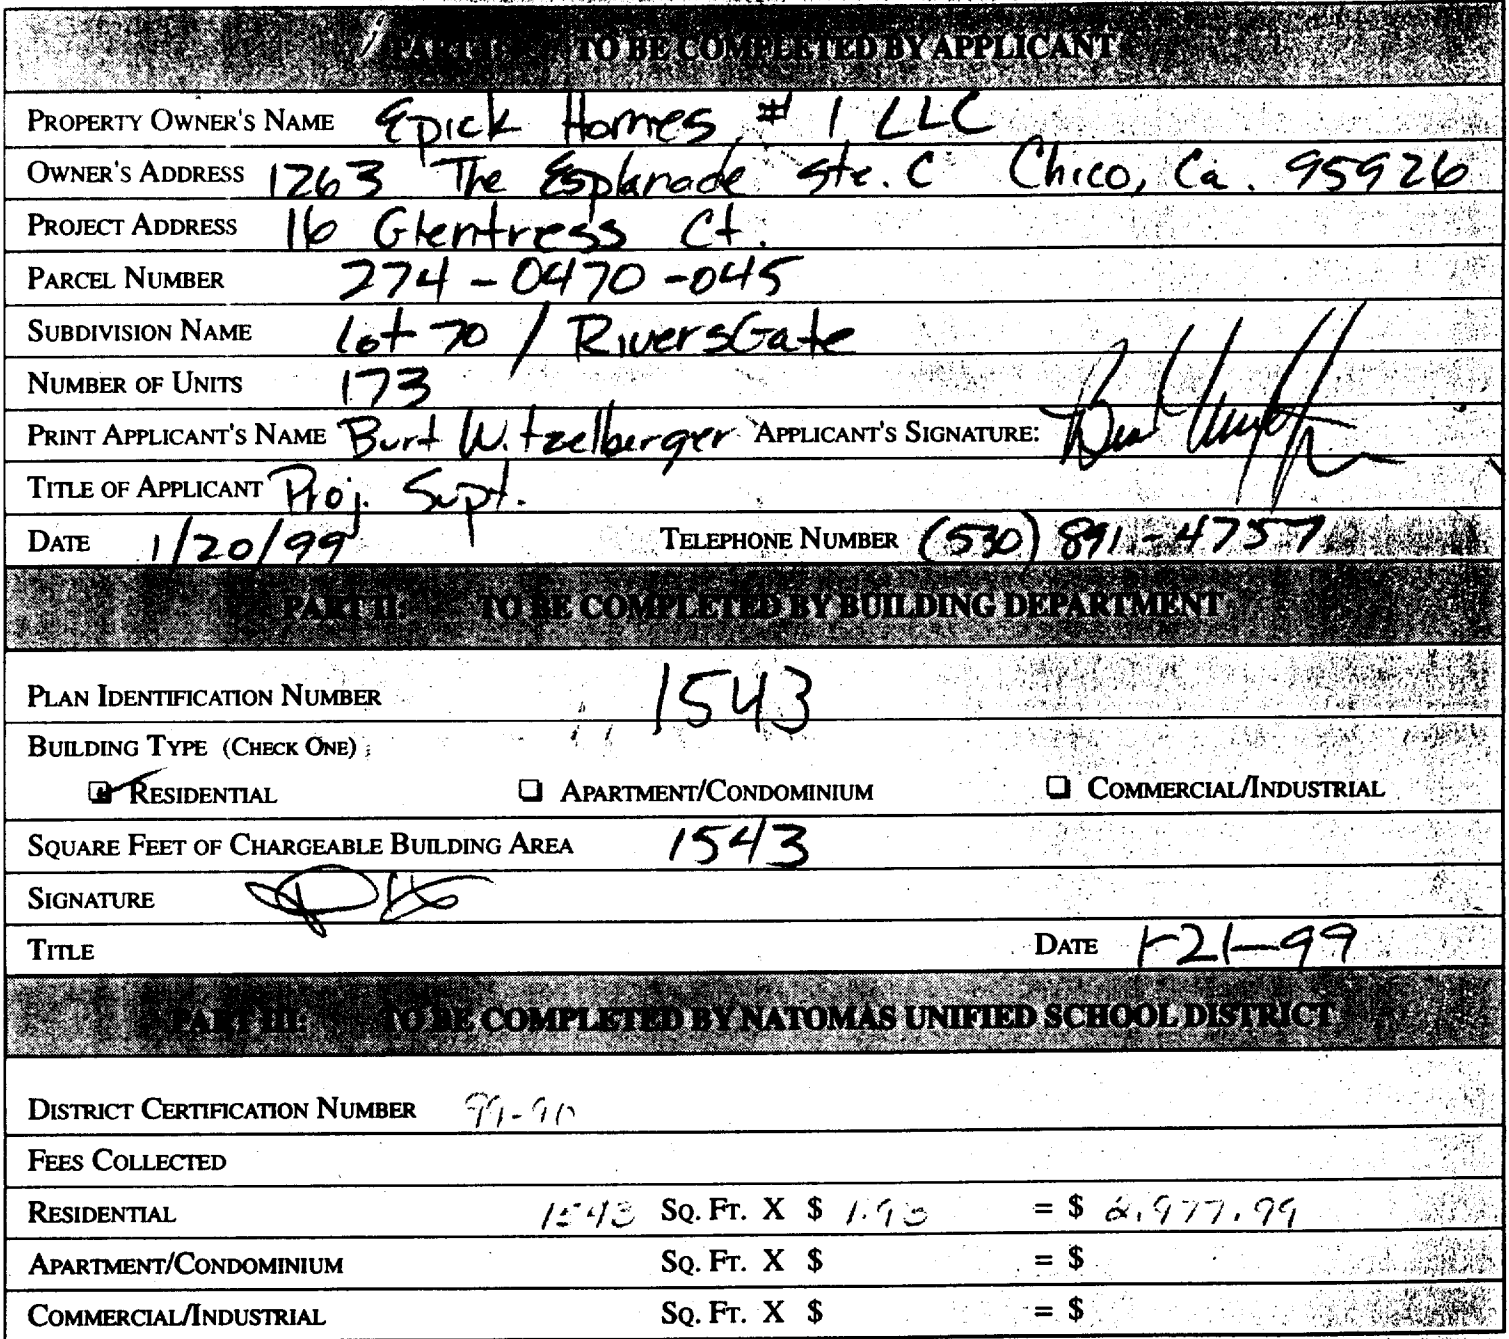 PART I: TO BE COMPLETED BY APPLICANT
PROPERTY OWNER'S NAME Epick Homes #1 LLC
OWNER'S ADDRESS 1263 The Esplanade Ste. C Chico, Ca. 95926
PROJECT ADDRESS 16 Glentress Ct.
PARCEL NUMBER 274-0470-045
SUBDIVISION NAME Lot 70 / RiversGate
NUMBER OF UNITS 173
PRINT APPLICANT'S NAME Burt Witzelberger APPLICANT'S SIGNATURE:
TITLE OF APPLICANT Proj. Supt.
DATE 1/20/99 TELEPHONE NUMBER (530) 891-4757
PART II: TO BE COMPLETED BY BUILDING DEPARTMENT
PLAN IDENTIFICATION NUMBER 1543
BUILDING TYPE (CHECK ONE)
RESIDENTIAL APARTMENT/CONDOMINIUM COMMERCIAL/INDUSTRIAL
SQUARE FEET OF CHARGEABLE BUILDING AREA 1543
SIGNATURE
TITLE DATE 1-21-99
PART III: TO BE COMPLETED BY NATOMAS UNIFIED SCHOOL DISTRICT
DISTRICT CERTIFICATION NUMBER 99-90
FEES COLLECTED
RESIDENTIAL 1543 SQ. FT. X $ 1.93 = $ 2,977.99
APARTMENT/CONDOMINIUM SQ. FT. X $ = $
COMMERCIAL/INDUSTRIAL SQ. FT. X $ = $